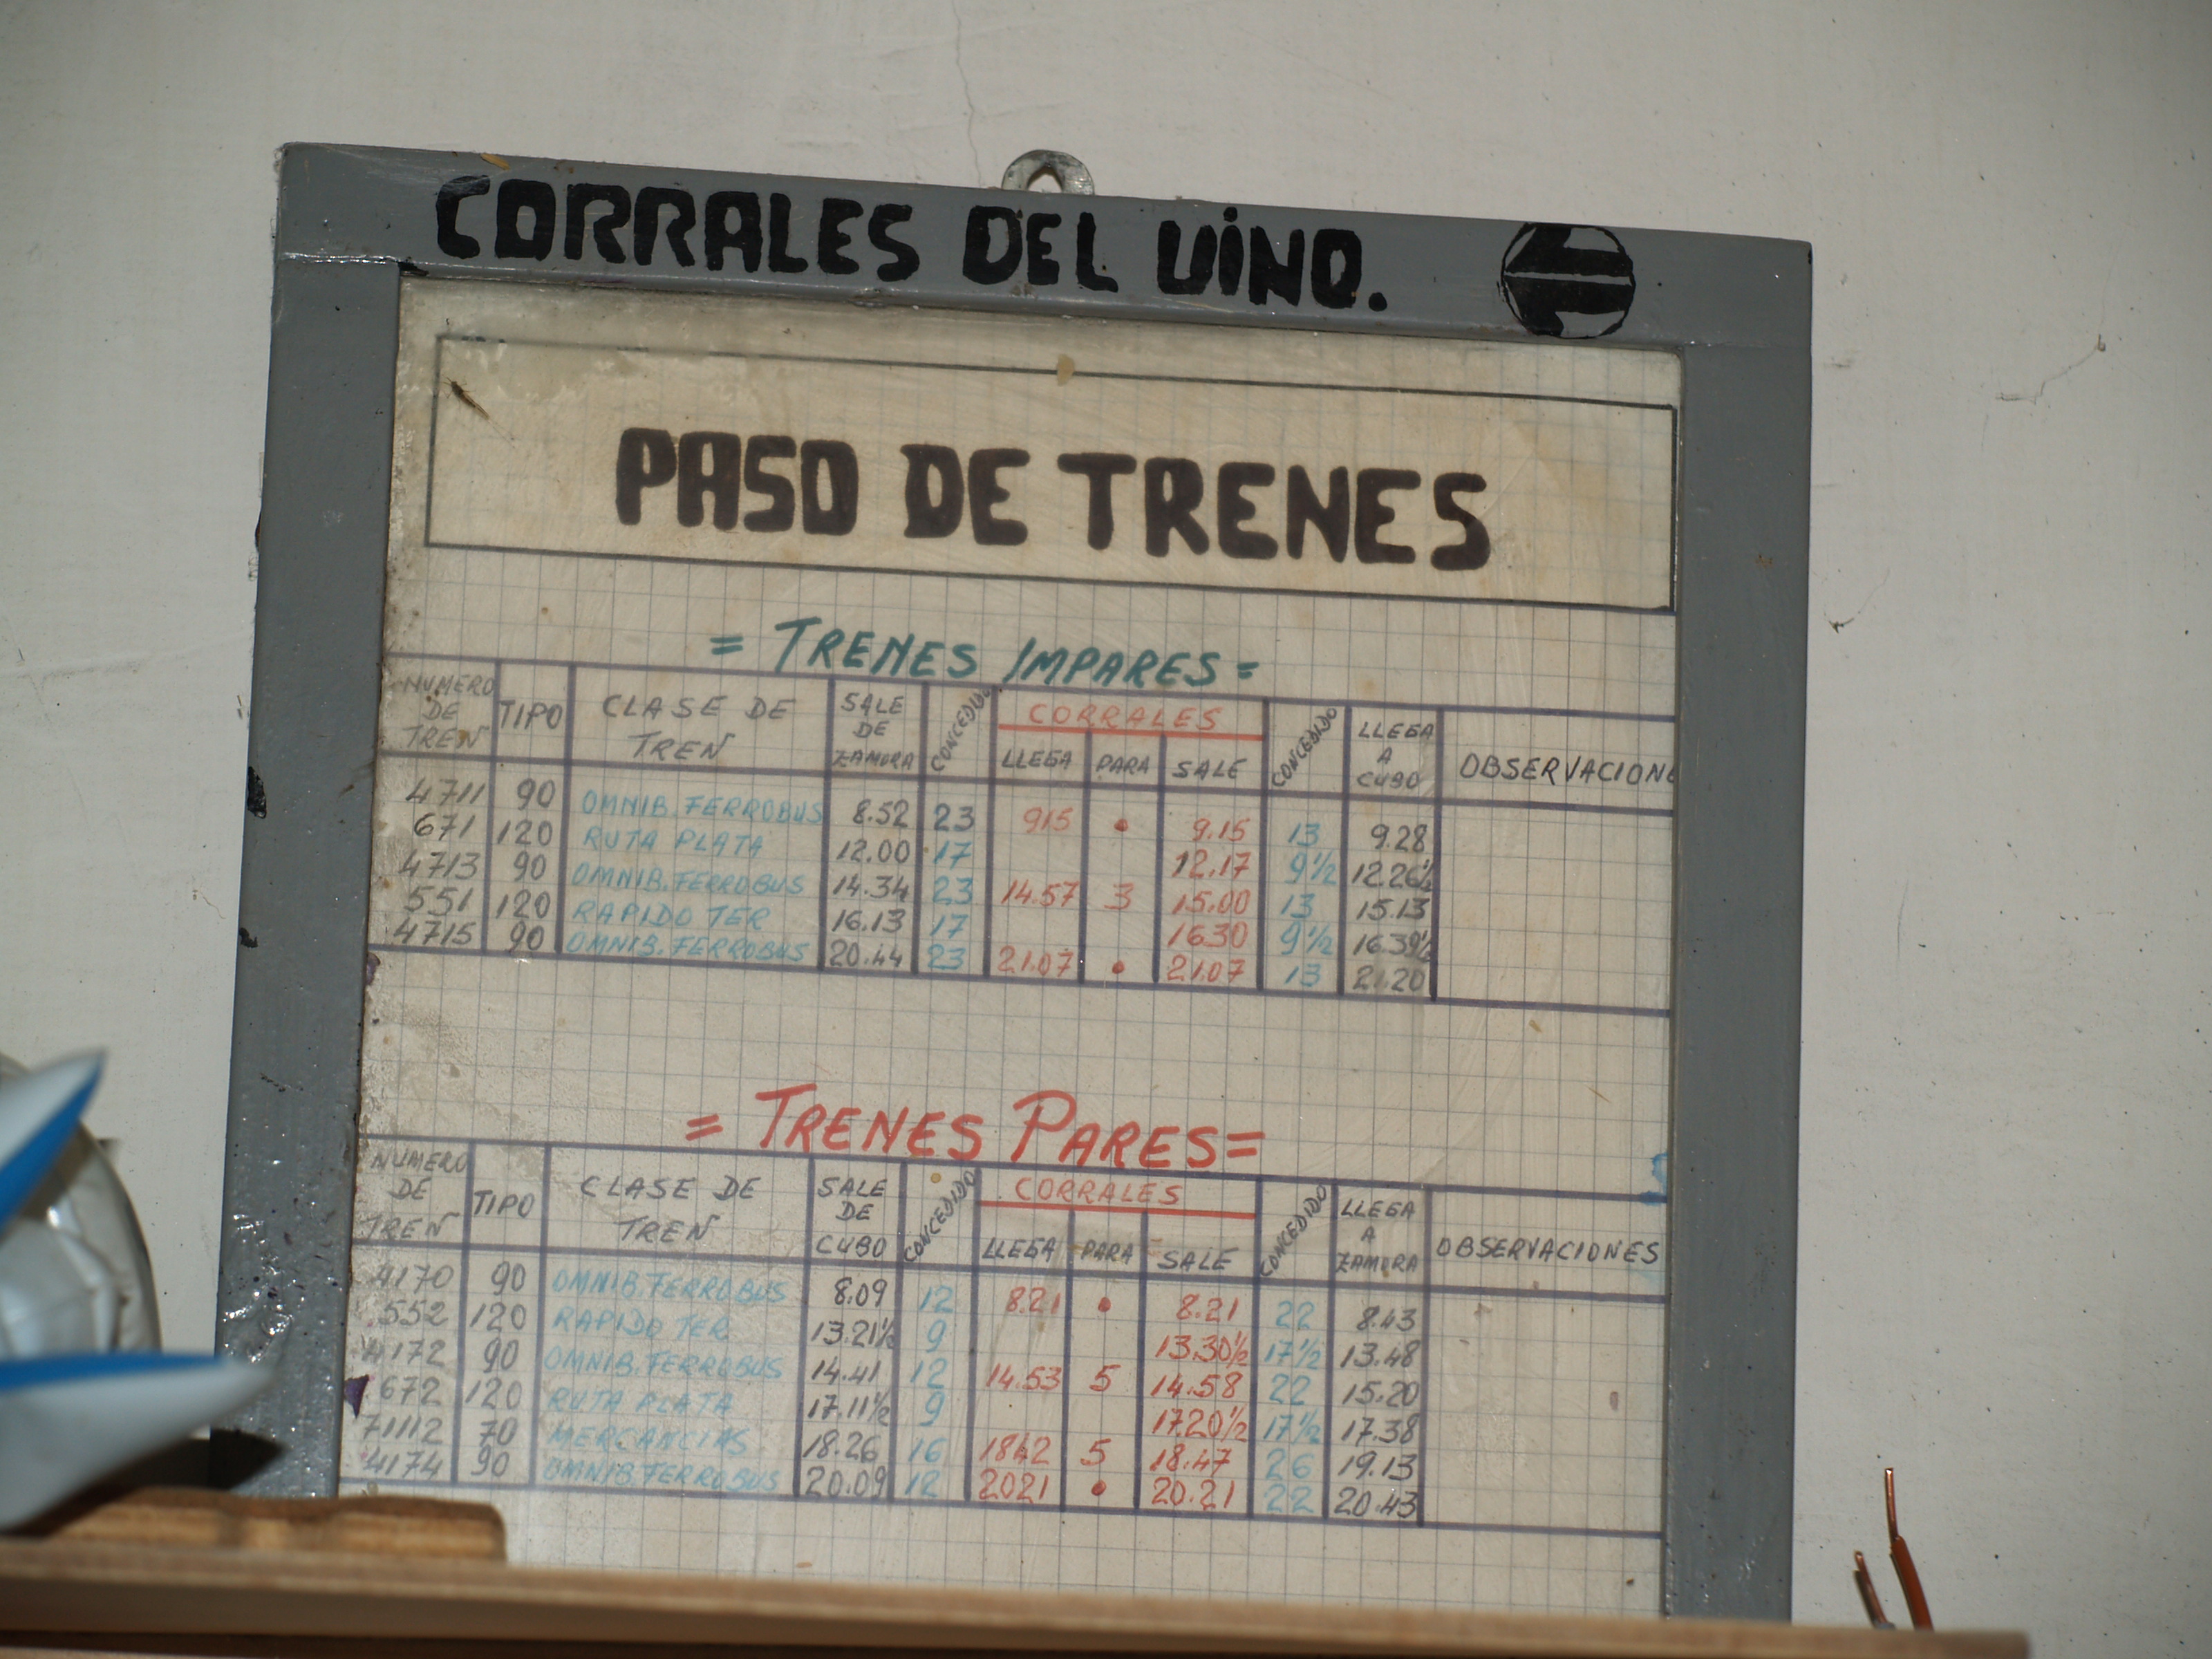 CORRALES DEL VINO.
PASO DE TRENES
= TRENES IMPARES =
NUMERO DE TREN TIPO CLASE DE TREN SALE DE ZAMORA CONCEDIDO CORRALES LLEGA PARA SALE CONCEDIDO LLEGA A CUBO OBSERVACIONE
4711 90 OMNIB. FERROBUS 8.52 23 915 • 9.15 13 9.28
671 120 RUTA PLATA 12.00 17 12.17 9½ 12.26½
4713 90 OMNIB. FERROBUS 14.34 23 14.57 3 15.00 13 15.13
551 120 RAPIDO TER 16.13 17 1630 9½ 16.39½
4715 90 OMNIB. FERROBUS 20.44 23 21.07 • 21.07 13 21.20
= TRENES PARES =
NUMERO DE TREN TIPO CLASE DE TREN SALE DE CUBO CONCEDIDO CORRALES LLEGA PARA SALE CONCEDIDO LLEGA A ZAMORA OBSERVACIONES
4170 90 OMNIB. FERROBUS 8.09 12 8.21 • 8.21 22 8.43
552 120 RAPIDO TER 13.21½ 9 13.30½ 17½ 13.48
4172 90 OMNIB. FERROBUS 14.41 12 14.53 5 14.58 22 15.20
672 120 RUTA PLATA 17.11½ 9 17.20½ 17½ 17.38
71112 70 MERCANCIAS 18.26 16 1842 5 18.47 26 19.13
4174 90 OMNIB. FERROBUS 20.09 12 2021 • 20.21 22 20.43